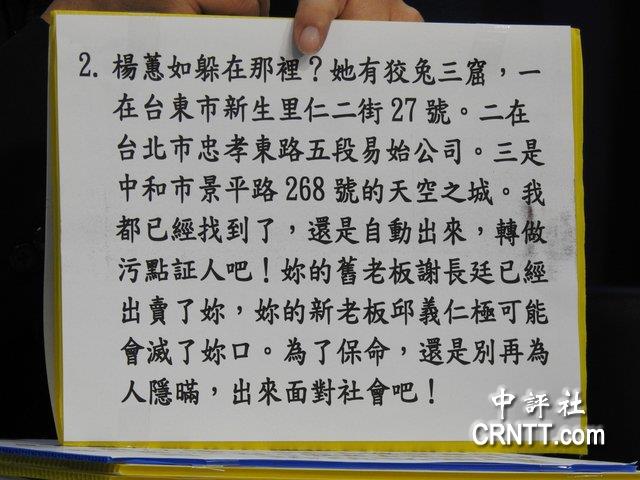 2. 楊蕙如躲在那裡？她有狡兔三窟，一
在台東市新生里仁二街27號。二在
台北市忠孝東路五段易始公司。三是
中和市景平路268號的天空之城。我
都已經找到了，還是自動出來，轉做
污點証人吧！妳的舊老板謝長廷已經
出賣了妳，妳的新老板邱義仁極可能
會滅了妳口。為了保命，還是別再為
人隱瞞，出來面對社會吧！
中評社
CRNTT.com